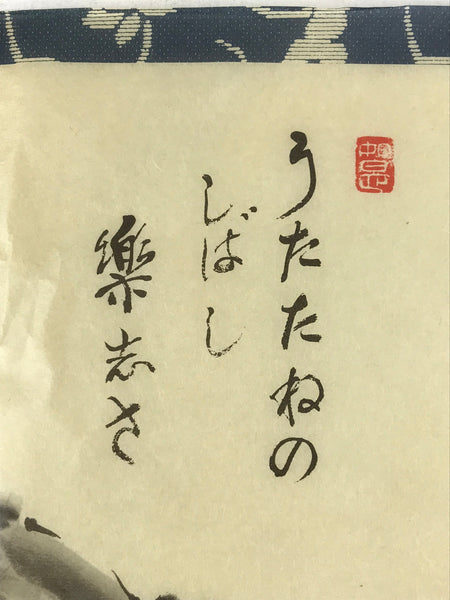 うたたねの
しばし
樂志さ